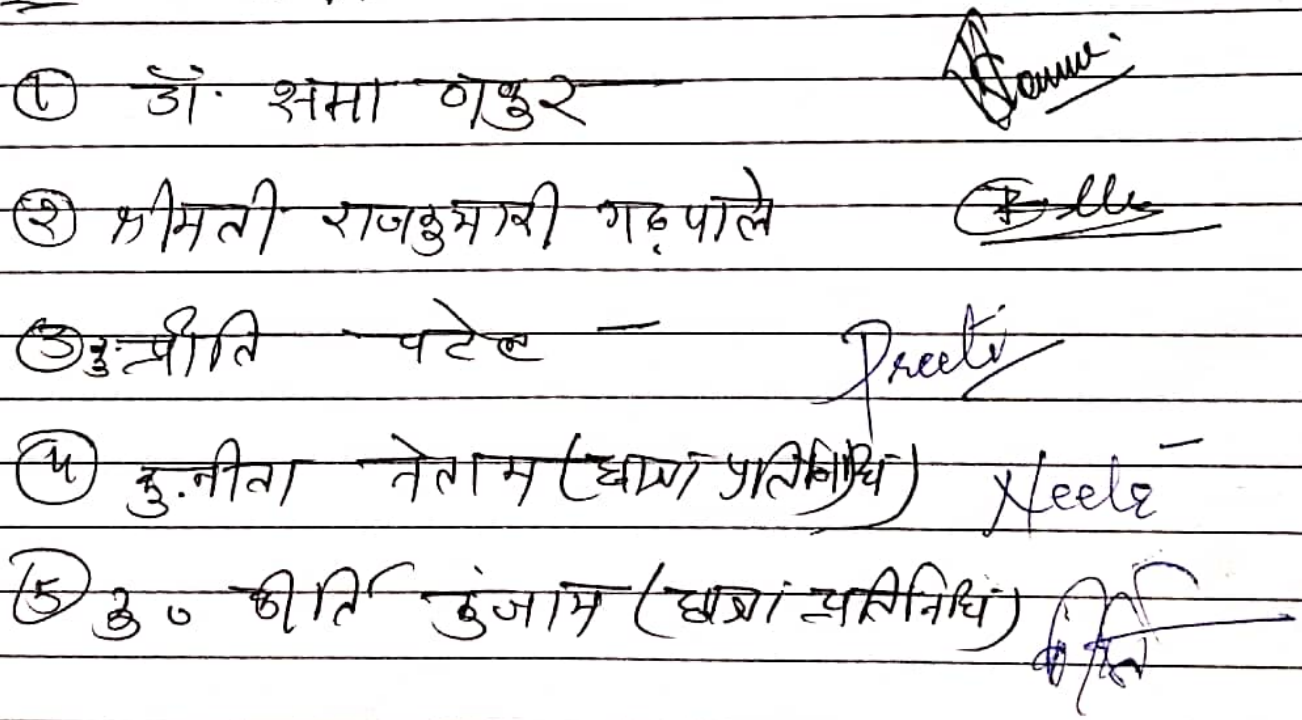 ① डॉ. क्षमा ठाकुर
② श्रीमती राजकुमारी गढ़पाले
③ कु. प्रीति पटेल — Preeti
④ कु. नीता नेताम (छात्रा प्रतिनिधि) Neeta
⑤ कु० कीर्ति कुंजाम (छात्रा प्रतिनिधि) कीर्ति